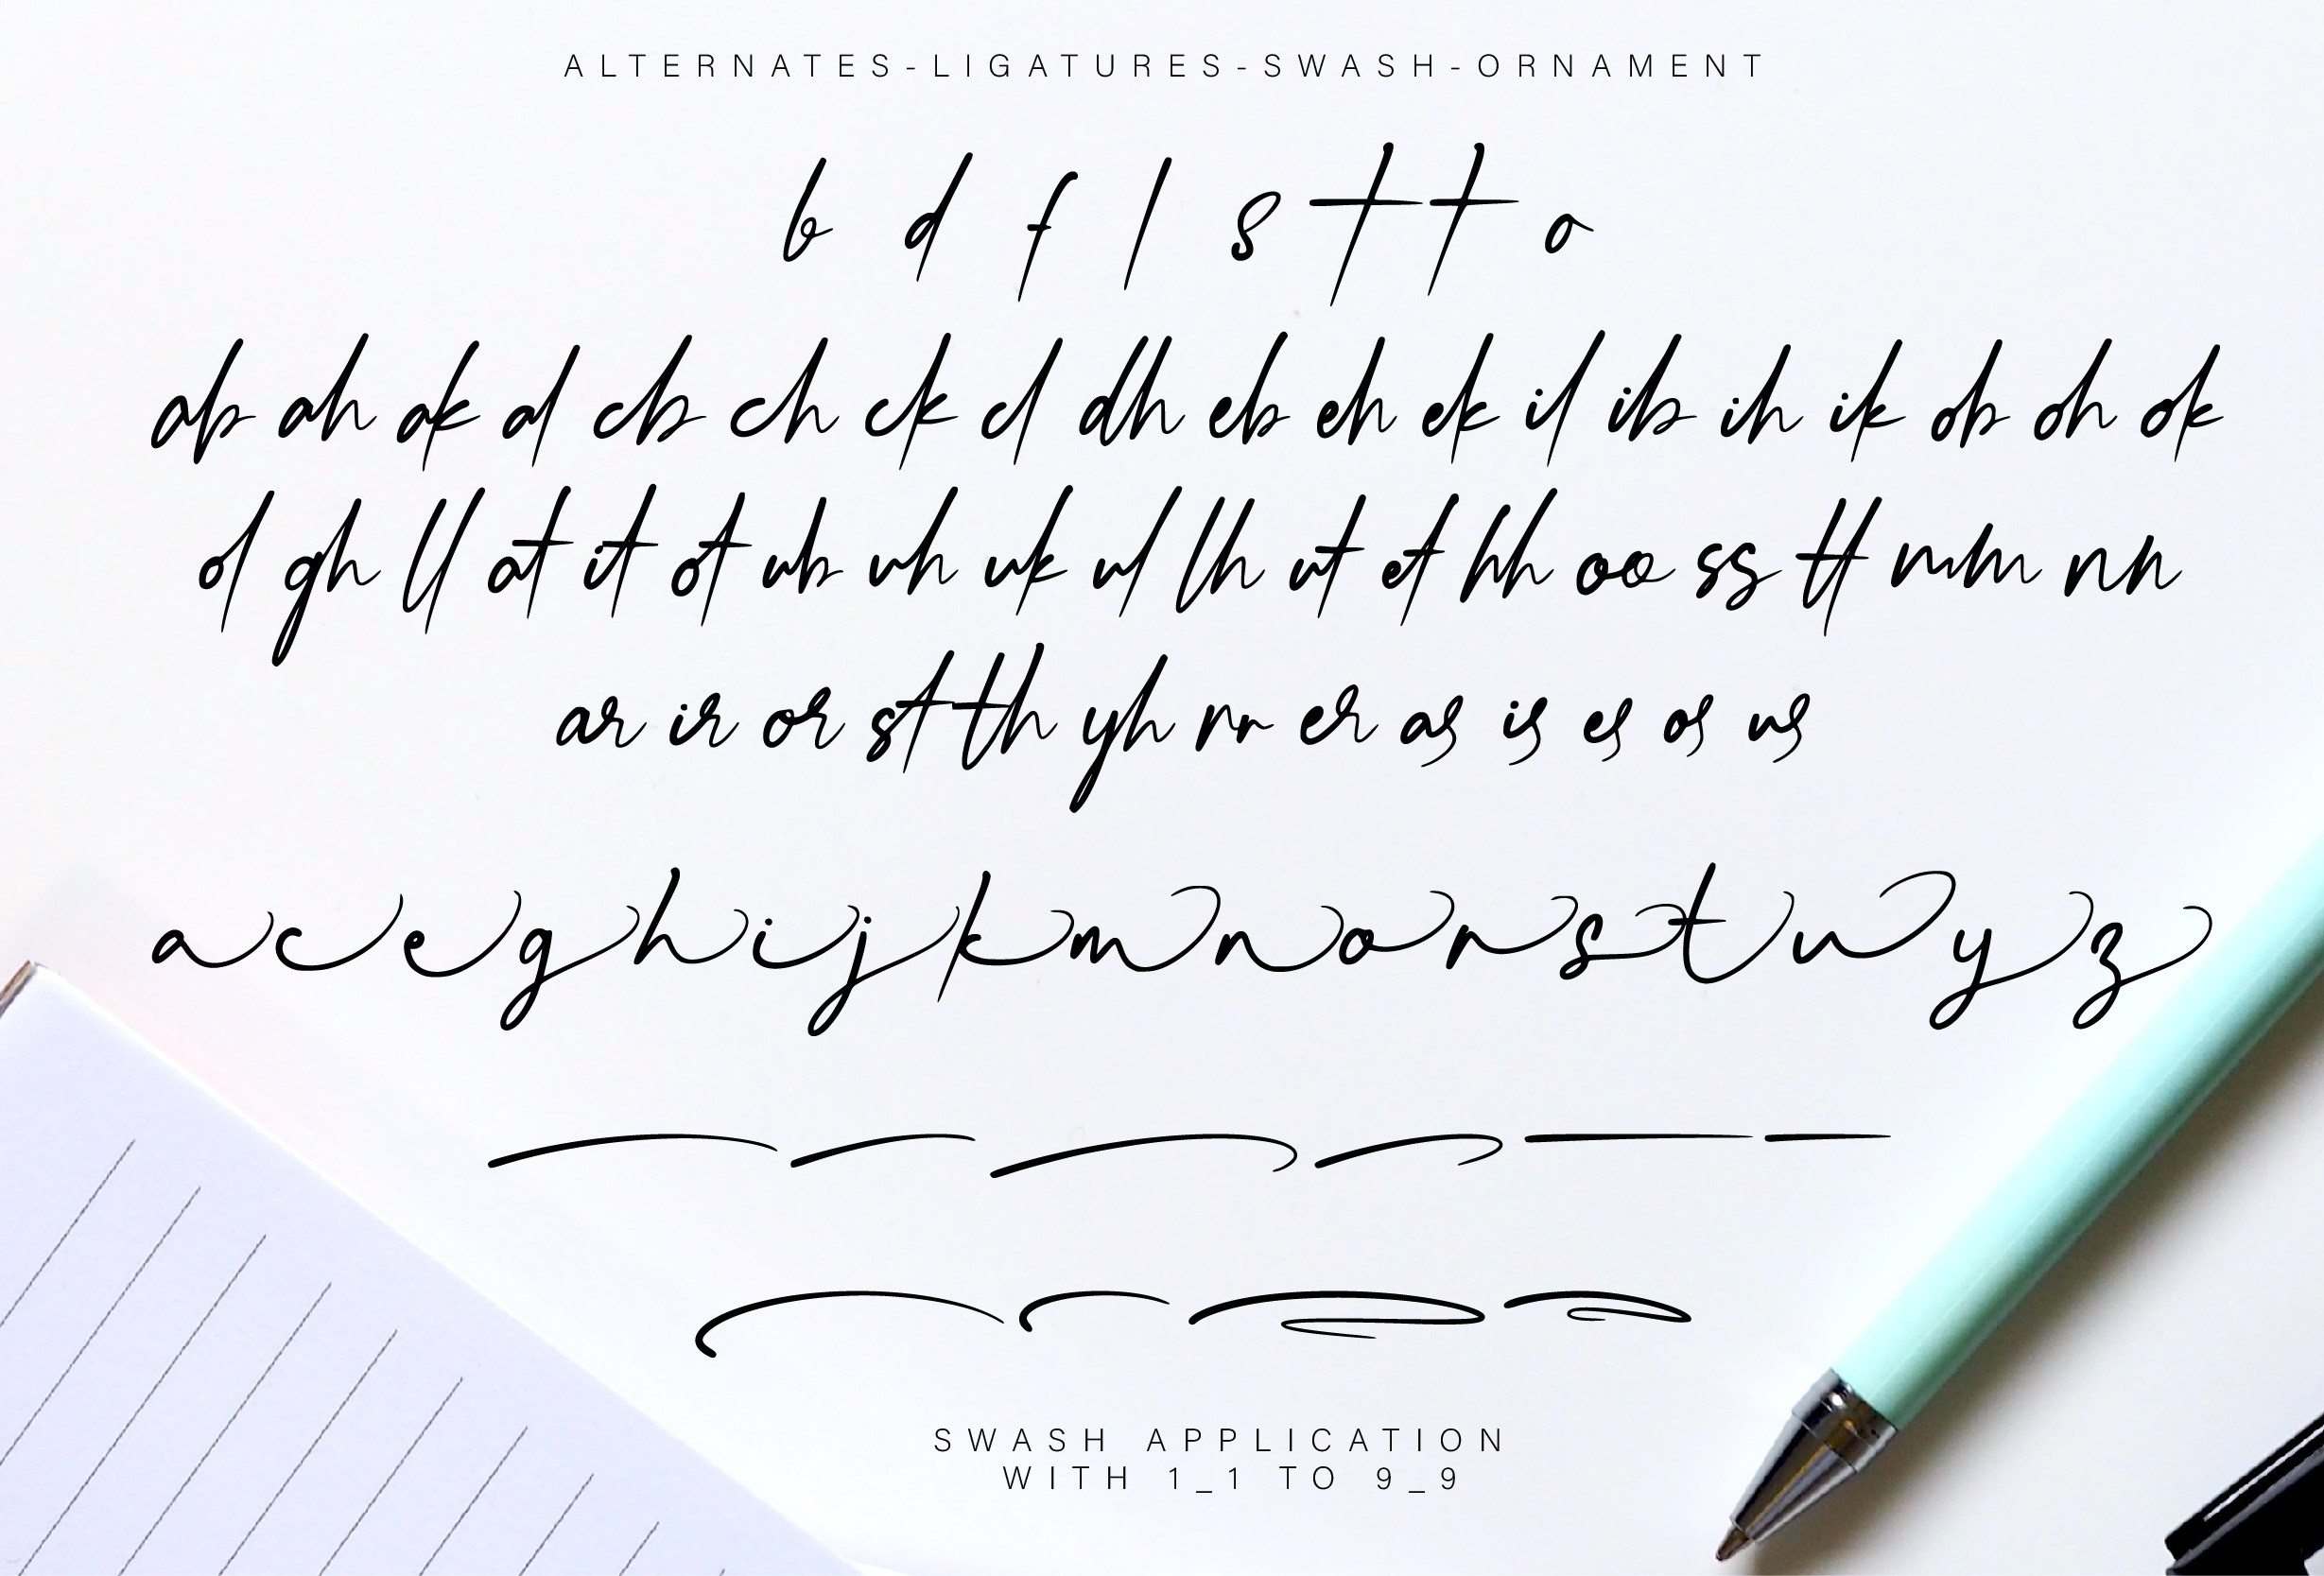 ALTERNATES-LIGATURES-SWASH-ORNAMENT
b d f l s t t o
ab ah ak al cb ch ck cl dh eb eh ek il ib ih ik ob oh ok
ol gh ll at it ot ub uh uk ul lh ut et hh oo ss tt mm nn
ar ir or st th yh rr er as is es os us
a c e g h i j k m n o r s t u y z
SWASH APPLICATION
WITH 1_1 TO 9_9